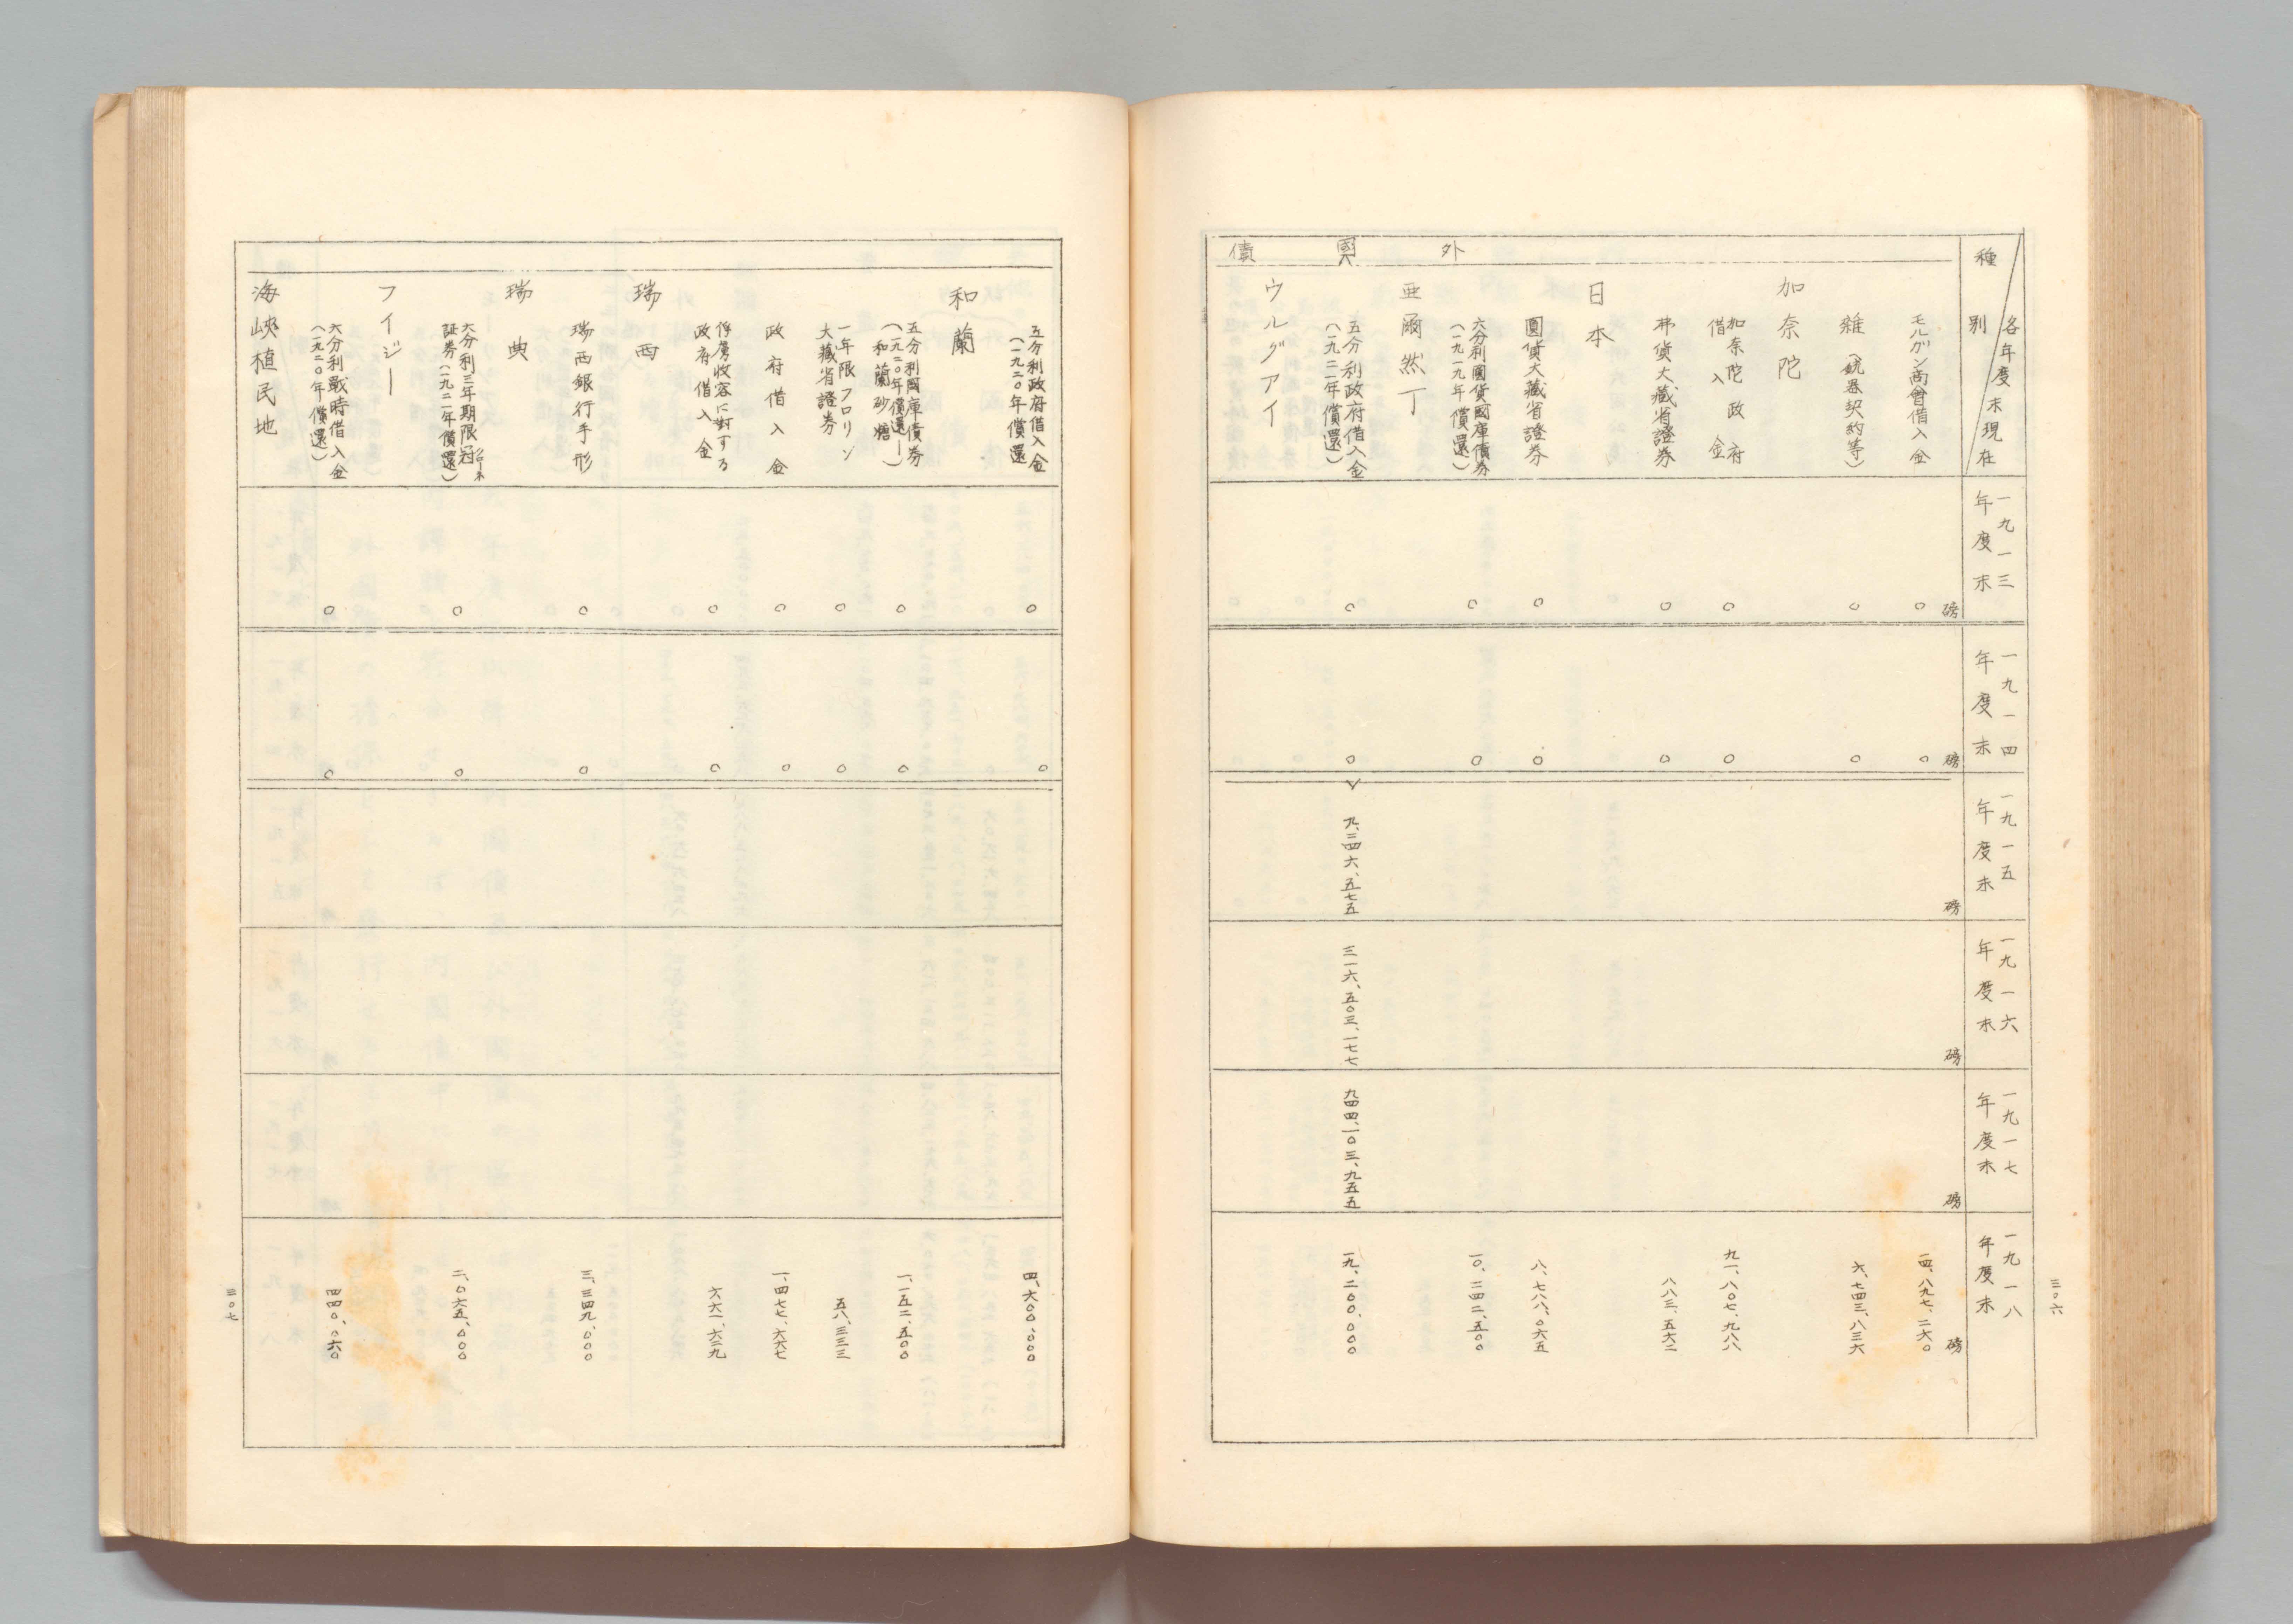 三〇六
各年度末現在
種別
一九一三
年度末
一九一四
年度末
一九一五
年度末
一九一六
年度末
一九一七
年度末
一九一八
年度末
磅
磅
磅
磅
磅
磅
外國債
モルガン商會借入金
〇
〇
一四、八九七、二六〇
雜(銃器契約等)
〇
〇
六、七四三、八三六
加奈陀
加奈陀政府
借入金
〇
〇
九一、八〇七、九八八
弗貨大藏省證券
〇
〇
八八三、五六二
日本
圓貨大藏省證券
〇
〇
八、七八八、〇六五
六分利圓貨國庫債券
(一九一九年償還)
〇
〇
一〇、二四二、五〇〇
亜爾然丁
五分利政府借入金
(一九二一年償還)
〇
〇
九、三四六、五七五
三一六、五〇三、一七七
九四四、一〇三、九五五
一九、二〇〇、〇〇〇
ウルグアイ
五分利政府借入金
(一九二〇年償還
〇
〇
四、六〇〇、〇〇〇
和蘭
五分利國庫債券
(一九二〇年償還—)
和蘭砂糖
〇
〇
一、一五二、五〇〇
一年限フロリン
大藏省證券
〇
〇
五八、三三三
政府借入金
〇
〇
一、四七七、六六七
瑞西
俘虜收容に對する
政府借入金
〇
〇
六六一、六二九
瑞西銀行手形
〇
〇
三、三四九、〇〇〇
瑞典
六分利三年期限冠クローネ
証券(一九二一年償還)
〇
〇
二、〇六五、〇〇〇
フイジー
六分利戰時借入金
(一九二〇年償還)
〇
〇
四四〇、〇六〇
海峽植民地
三〇七